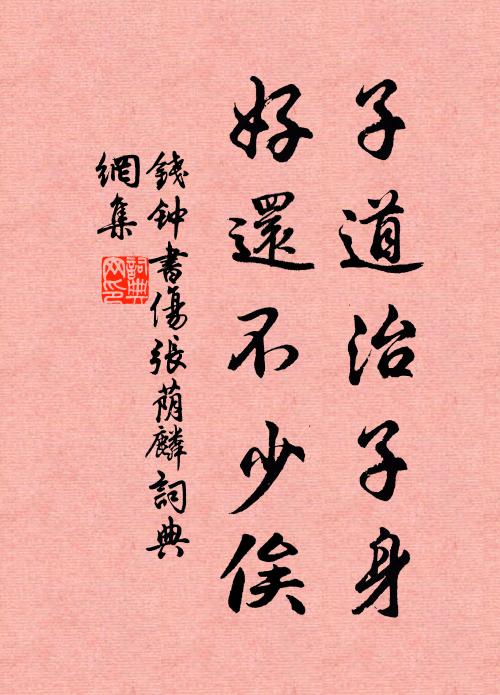 子道治子身
好還不少俟
錢钟書傷張荫麟詞典
網集
詞典
网印